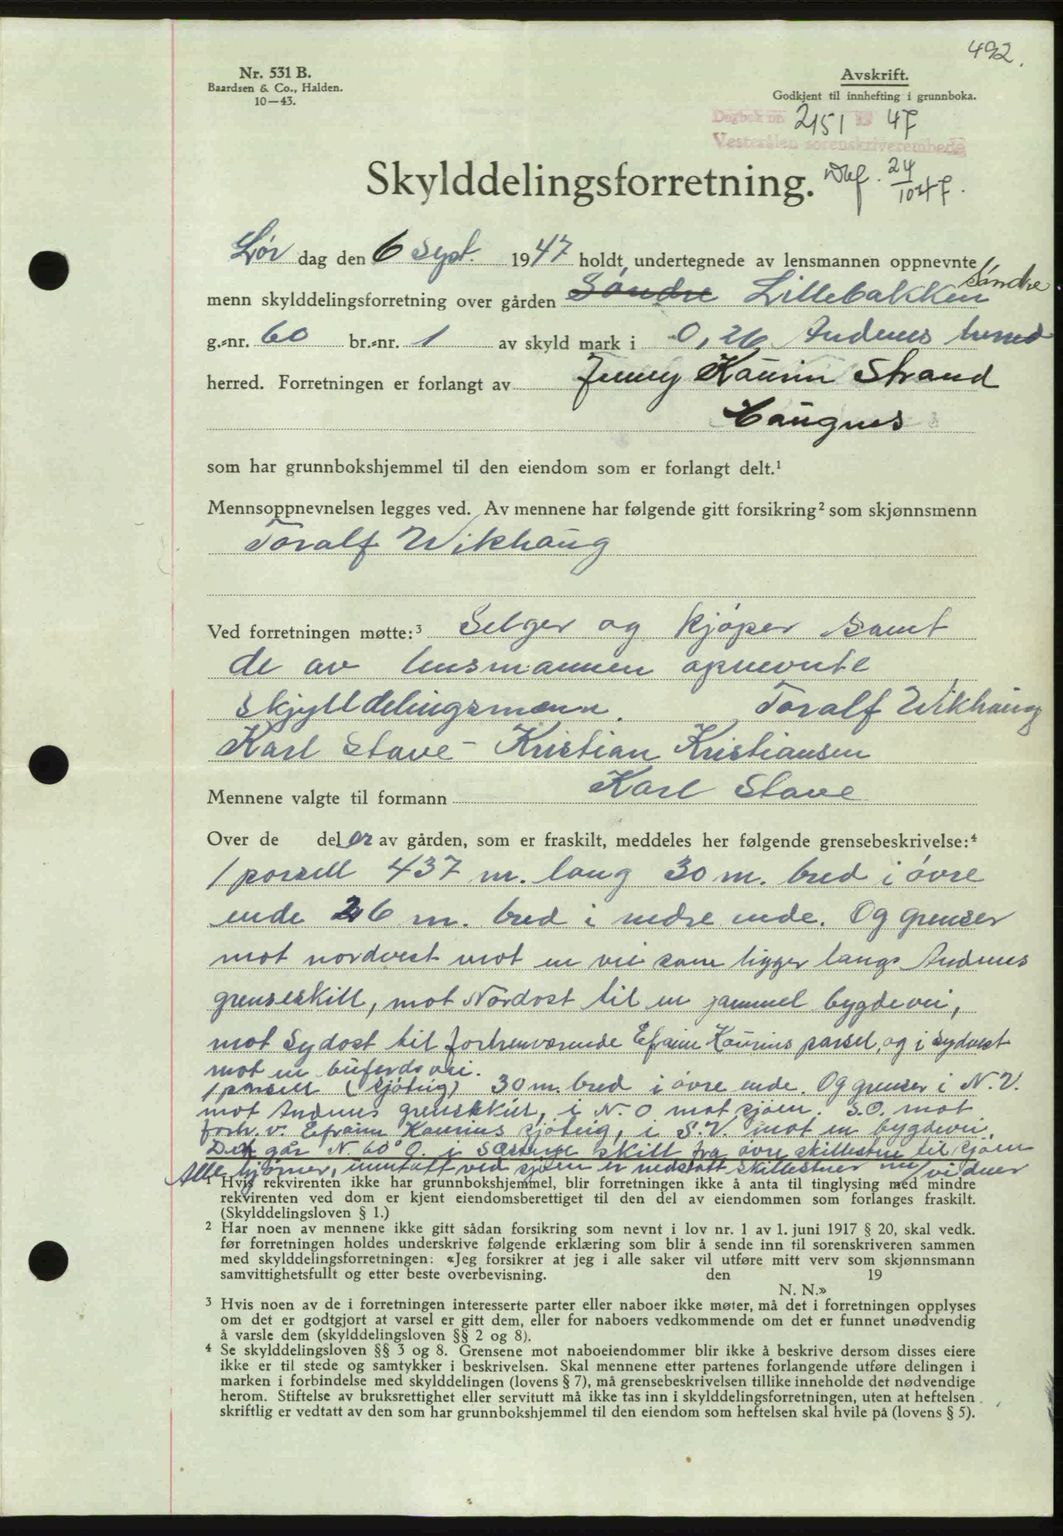 492.
Nr. 531 B.
Baardsen & Co., Halden.
10—43.
Avskrift.
Godkjent til innhefting i grunnboka.
Dagbok nr. 2151 1947
Vesterålen sorenskriverembede
Skylddelingsforretning.
24/10 47.
Lør dag den 6 Sept. 1947 holdt undertegnede av lensmannen oppnevnte
menn skylddelingsforretning over gården Søndre Lillebakken Søndre
g.-nr. 60 br.-nr. 1 av skyld mark i 0,26 Andenes herred
herred. Forretningen er forlangt av Jenny Kaurin Strand
Haugnes
som har grunnbokshjemmel til den eiendom som er forlangt delt.¹
Mennsoppnevnelsen legges ved. Av mennene har følgende gitt forsikring² som skjønnsmenn
Toralf Wikhaug
Ved forretningen møtte:³ Selger og kjøper samt
de av lensmannen opnevnte
skjylldelingsmenn. Toralf Wikhaug
Karl Stave - Kristian Kristiansen
Mennene valgte til formann Karl Stave
Over de del er av gården, som er fraskilt, meddeles her følgende grensebeskrivelse:⁴
1 parsell 437 m. lang 30 m. bred i øvre
ende 26 m. bred i nedre ende. Og grenser
mot nordvest mot en vei som ligger langs Andenes
grenseskill, mot Nordost til en gammel bygdevei,
mot Sydost til forhenværende Efraim Kaurins parsel, og i sydvest
mot en buferdsvei.
1 parsell (sjøteig) 30 m. bred i øvre ende. Og grenser i N.V.
mot Andenes grenseskill, i N.O mot sjøen. S.O. mot
forh. v. Efraim Kaurins sjøteig, i S.V. mot en bygdevei.
Den går N. 60° O. i Sætrings skill fra øvre skillestene til sjøen
Alle hjørner, inntatt ved sjøen er nedsatt skillestener m/ vidner
¹ Hvis rekvirenten ikke har grunnbokshjemmel, blir forretningen ikke å anta til tinglysing med mindre
rekvirenten ved dom er kjent eiendomsberettiget til den del av eiendommen som forlanges fraskilt.
(Skylddelingsloven § 1.)
² Har noen av mennene ikke gitt sådan forsikring som nevnt i lov nr. 1 av 1. juni 1917 § 20, skal vedk.
før forretningen holdes underskrive følgende erklæring som blir å sende inn til sorenskriveren sammen
med skylddelingsforretningen: «Jeg forsikrer at jeg i alle saker vil utføre mitt verv som skjønnsmann
samvittighetsfullt og etter beste overbevisning. den 19
N. N.»
³ Hvis noen av de i forretningen interesserte parter eller naboer ikke møter, må det i forretningen opplyses
om det er godtgjort at varsel er gitt dem, eller for naboers vedkommende om det er funnet unødvendig
å varsle dem (skylddelingsloven §§ 2 og 8).
⁴ Se skylddelingsloven §§ 3 og 8. Grensene mot naboeiendommer blir ikke å beskrive dersom disses eiere
ikke er til stede og samtykker i beskrivelsen. Skal mennene etter partenes forlangende utføre delingen i
marken i forbindelse med skylddelingen (lovens § 7), må grensebeskrivelsen tillike inneholde det nødvendige
herom. Stiftelse av bruksrettighet eller servitutt må ikke tas inn i skylddelingsforretningen, uten at heftelsen
skriftlig er vedtatt av den som har grunnbokshjemmel til den eiendom som heftelsen skal hvile på (lovens § 5).